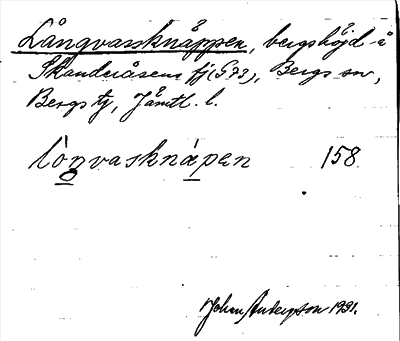 Långvassknäppen, bergshöjd å
Skanderåsens fj (G73), Bergs sn,
Bergs tg, Jämtl. l.
lòn̥vasknápen 158.
Johan Andersson 1931.